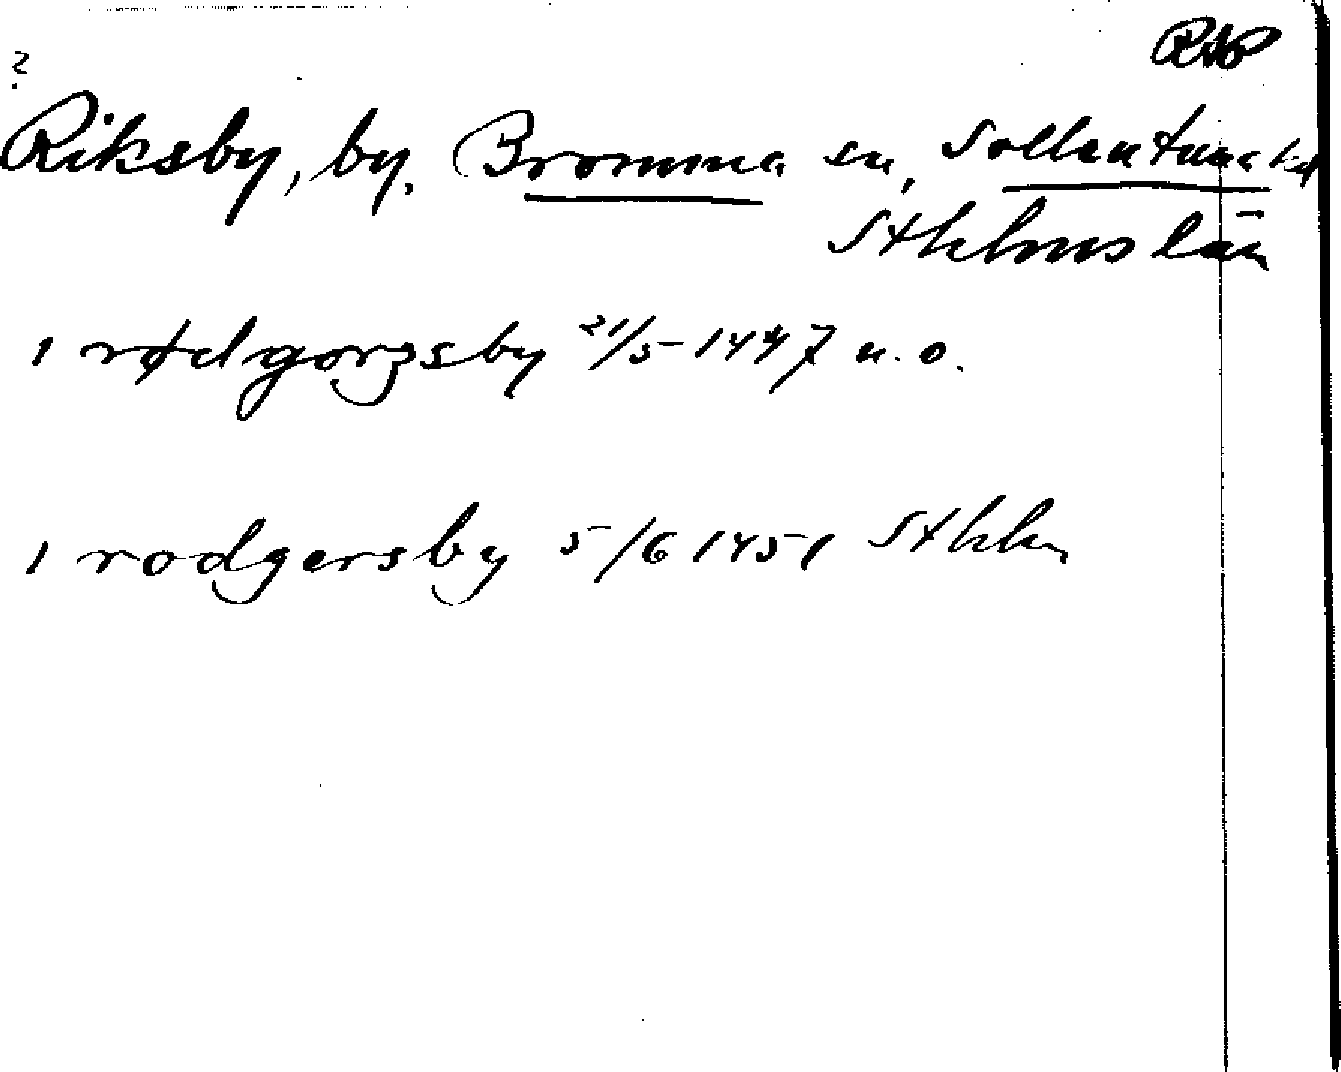 ?
Riksby, by, Bromma sn, Sollentuna hd
Sthlms län
i rødgorzsby 21/5 1447 u. o.
i rodgersby 5/6 1451 Sthlm